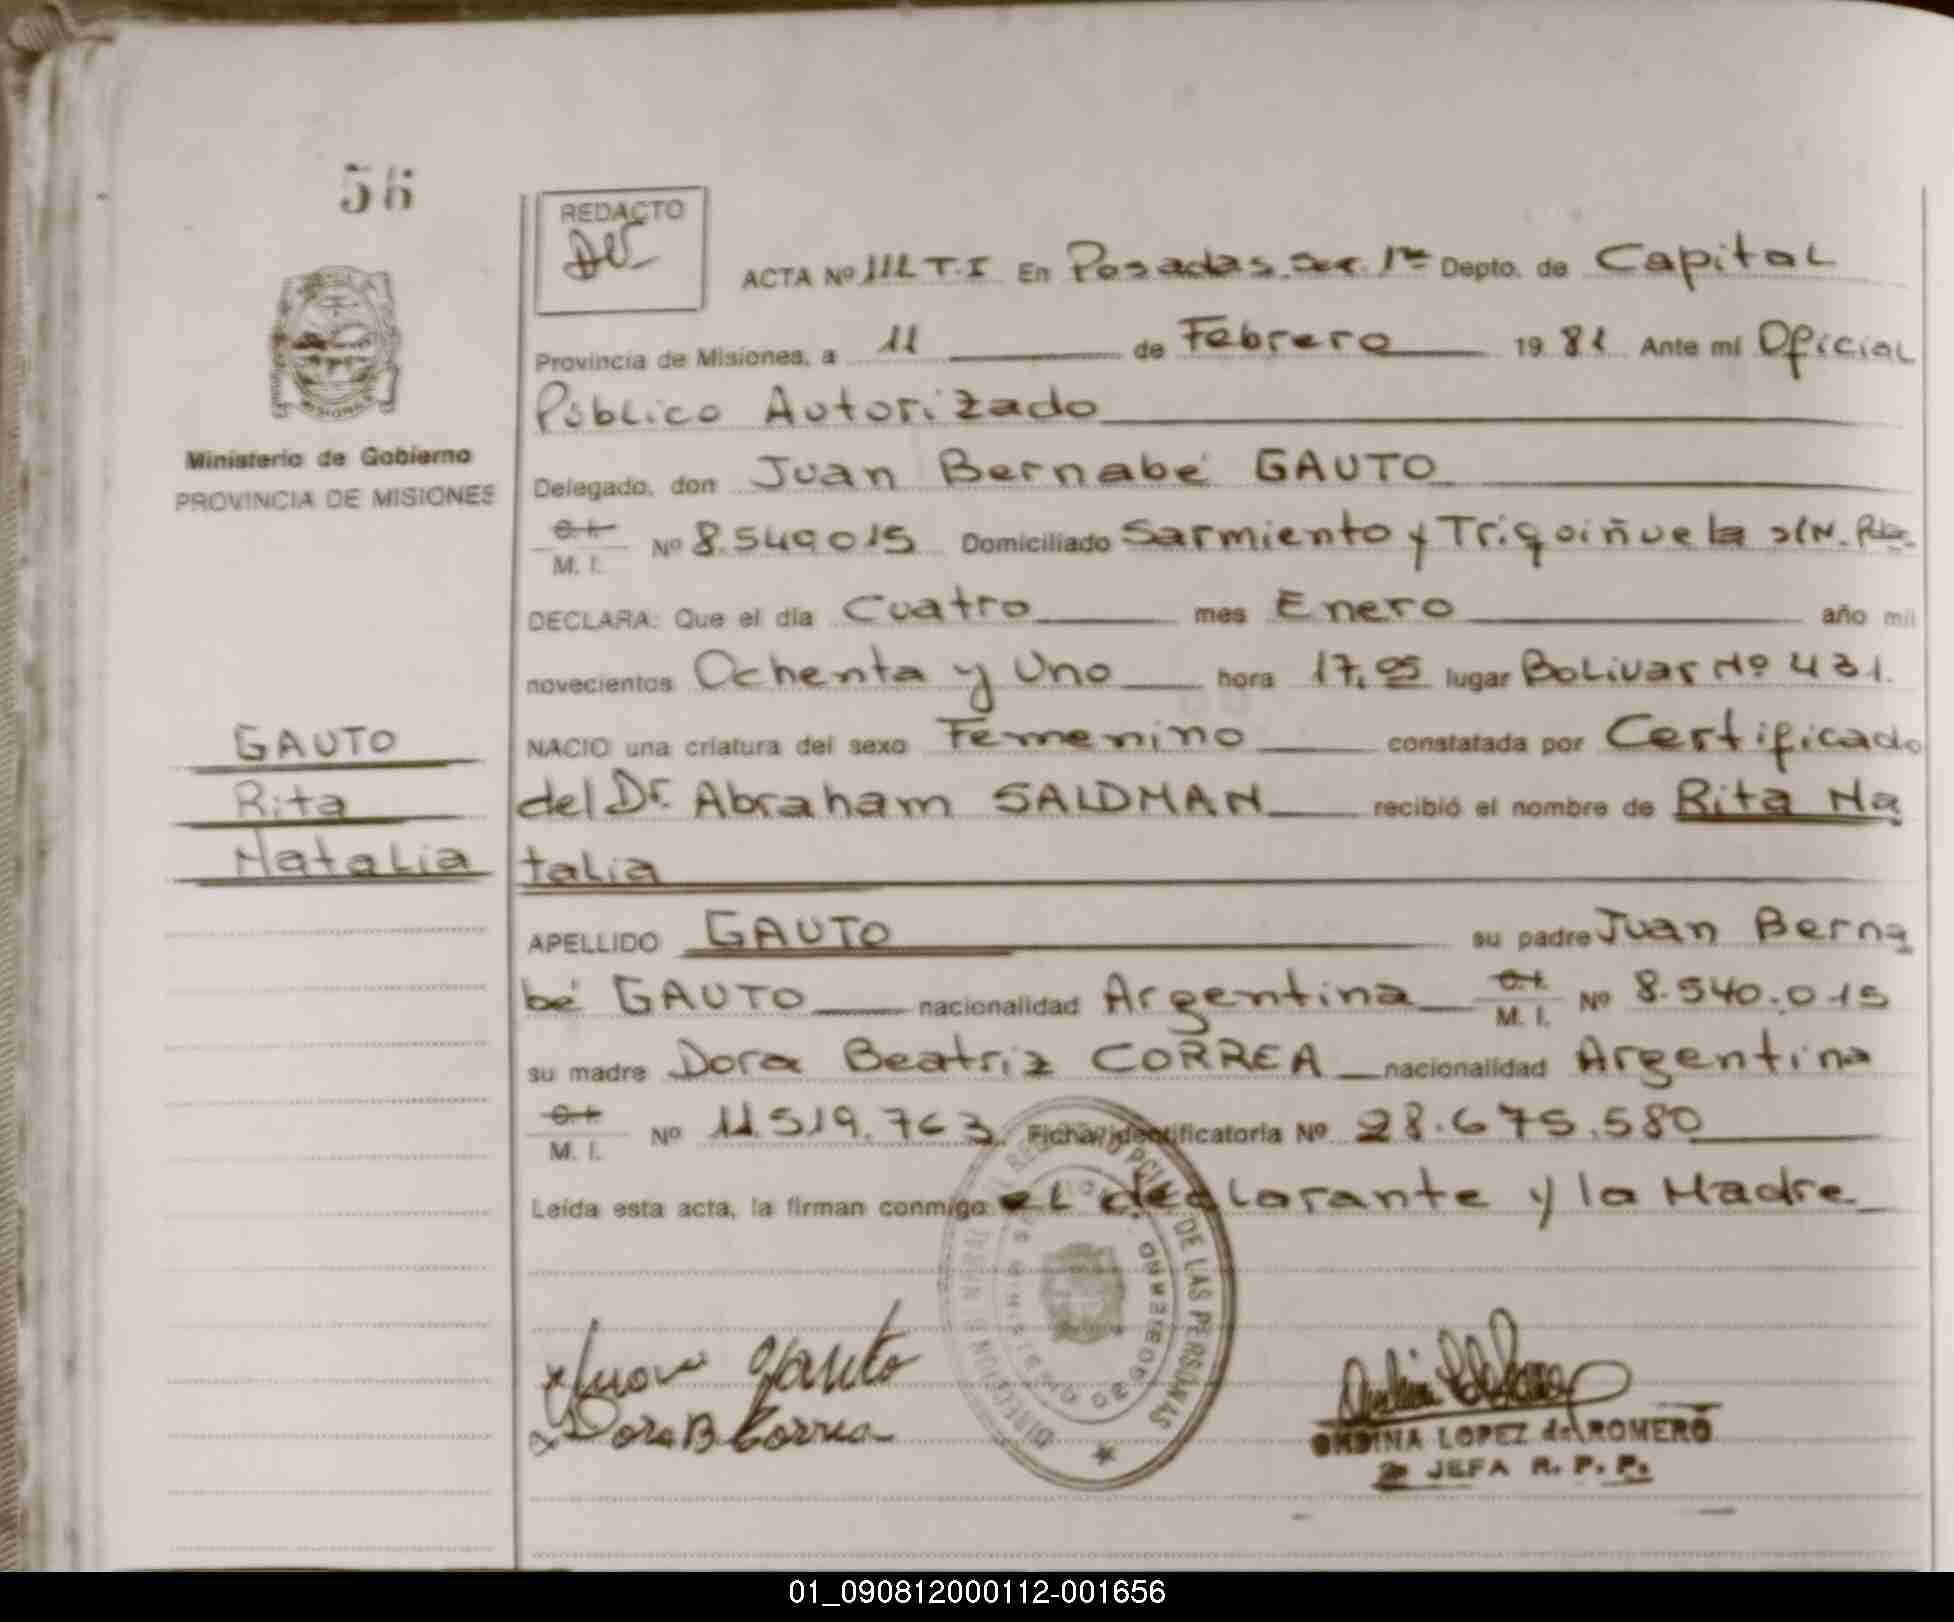 56
REDACTO
ACTA Nº 112 T.I En Posadas. Sec. 1ra Depto. de Capital
MISIONES
Provincia de Misiones, a 11 de Febrero 1981 Ante mi Oficial
Público Autorizado
Ministerio de Gobierno
PROVINCIA DE MISIONES
Delegado, don Juan Bernabé GAUTO
C.I. M. I. Nº 8.540015 Domiciliado Sarmiento y Trigoiñuela s/N. Pdas.
DECLARA: Que el día Cuatro mes Enero año mil
novecientos Ochenta y Uno hora 17,05 lugar Bolivar Nº 431.
GAUTO
Rita
Natalia
NACIO una criatura del sexo Femenino constatada por Certificado
del Dr. Abraham SALDMAN recibió el nombre de Rita Na
talia
APELLIDO GAUTO su padre Juan Berna
bé GAUTO nacionalidad Argentina C.I. M. I. Nº 8.540.015
su madre Dora Beatriz CORREA nacionalidad Argentina
C.I. M. I. Nº 11.519.763 Ficha identificatoria Nº 28.675.580
Leída esta acta, la firman conmigo el declarante y la Madre
DE LAS PERSONAS
Juan Gauto
Dora B Correa
ONDINA LOPEZ de ROMERO
2ª JEFA R. P. P.
01_090812000112-001656